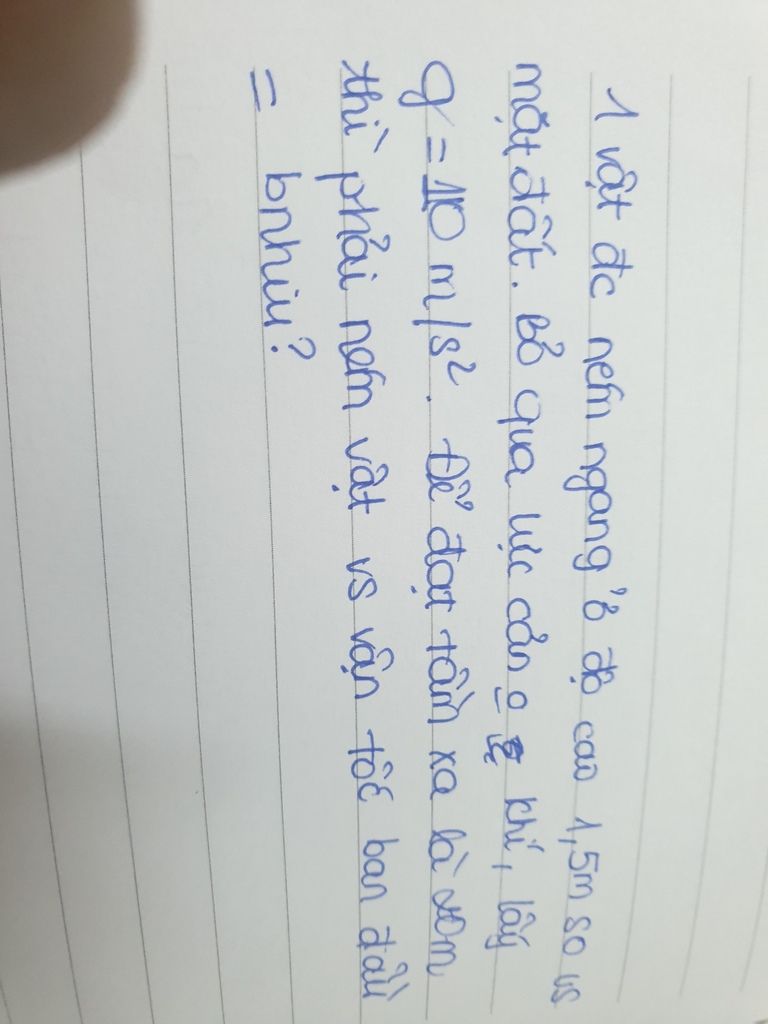 1 vật đc ném ngang ở độ cao 1,5m so vs
mặt đất. Bỏ qua lực cản o khí, lấy
g = 10 m/s². Để đạt tầm xa là
thì phải ném vật vs vận tốc ban đầu
= bnhiu?